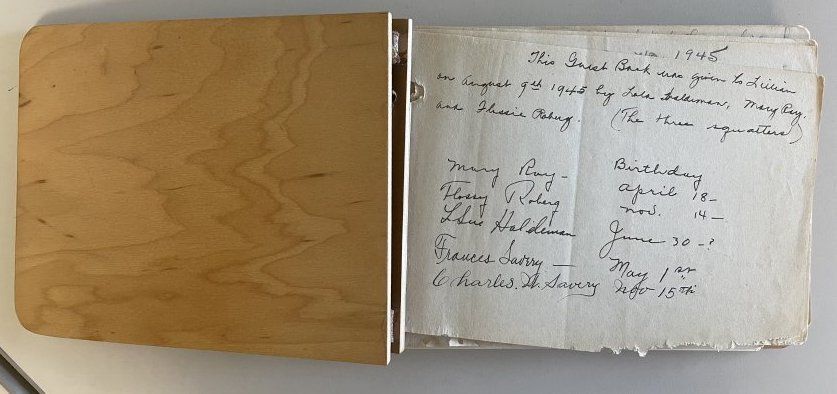 1945
This Guest Book was given to Lillian
on August 9th 1945 by Lola Halderman, Mary Ray,
and Flossie Roberg. (The three squatters)
Mary Ray - Birthday April 18 -
Flossy Roberg Nov. 14 -
Haldeman June 30 - ?
Frances Savery - May 1st
Charles. W. Savery Nov 15th